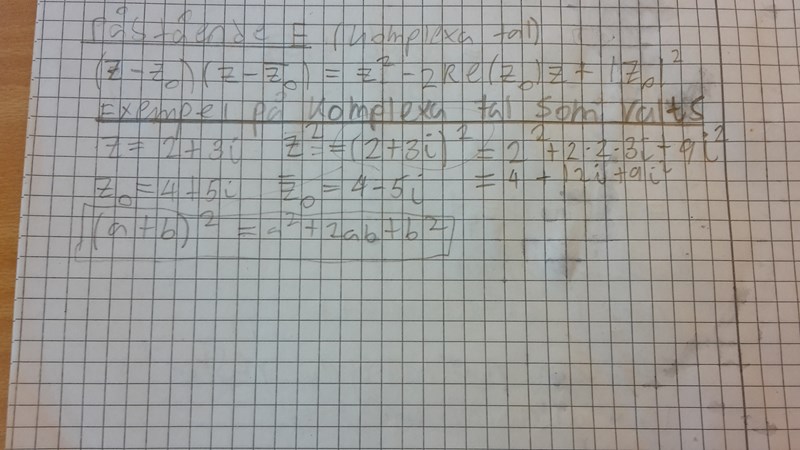 Påstående E (Komplexa tal)
(z-z₀)(z-z̅₀) = z²-2Re(z₀)z+|z₀|²
Exempel på komplexa tal som valts
z = 2+3i z²==(2+3i)² = 2²+2·2·3i+9i²
z₀ = 4+5i z̅₀ = 4-5i = 4+12i+9i²
(a+b)² = a²+2ab+b²